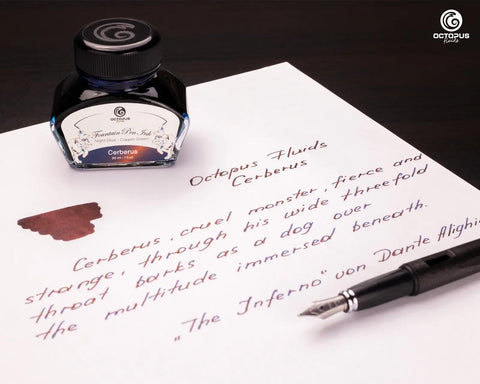 OCTOPUS
fluids
OCTOPUS
Fountain Pen Ink
Night Blue / Copper Sheen
Cerberus
30 ml / 1 oz
Octopus Fluids
Cerberus
Cerberus, cruel monster, fierce and
strange, through his wide threefold
throat barks as a dog over
the multitude immersed beneath.
„The Inferno“ von Dante Alighi